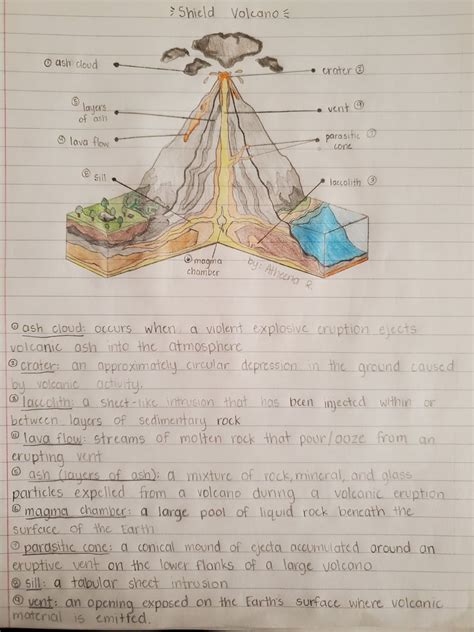 Shield Volcano
① ash cloud
crater ②
⑤ layers of ash
vent ⑨
④ lava flow
parasitic ⑦ cone
⑧ sill
laccolith ③
⑥ magma chamber
by: Atheena R.
① ash cloud: occurs when a violent explosive eruption ejects
volcanic ash into the atmosphere
② crater: an approximately circular depression in the ground caused
by volcanic activity.
③ laccolith: a sheet-like intrusion that has been injected within or
between layers of sedimentary rock
④ lava flow: streams of molten rock that pour/ooze from an
erupting vent
⑤ ash (layers of ash): a mixture of rock, mineral, and glass
particles expelled from a volcano during a volcanic eruption
⑥ magma chamber: a large pool of liquid rock beneath the
surface of the Earth
⑦ parasitic cone: a conical mound of ejecta accumulated around an
eruptive vent on the lower flanks of a large volcano
⑧ sill: a tabular sheet intrusion
⑨ vent: an opening exposed on the Earth's surface where volcanic
material is emitted.